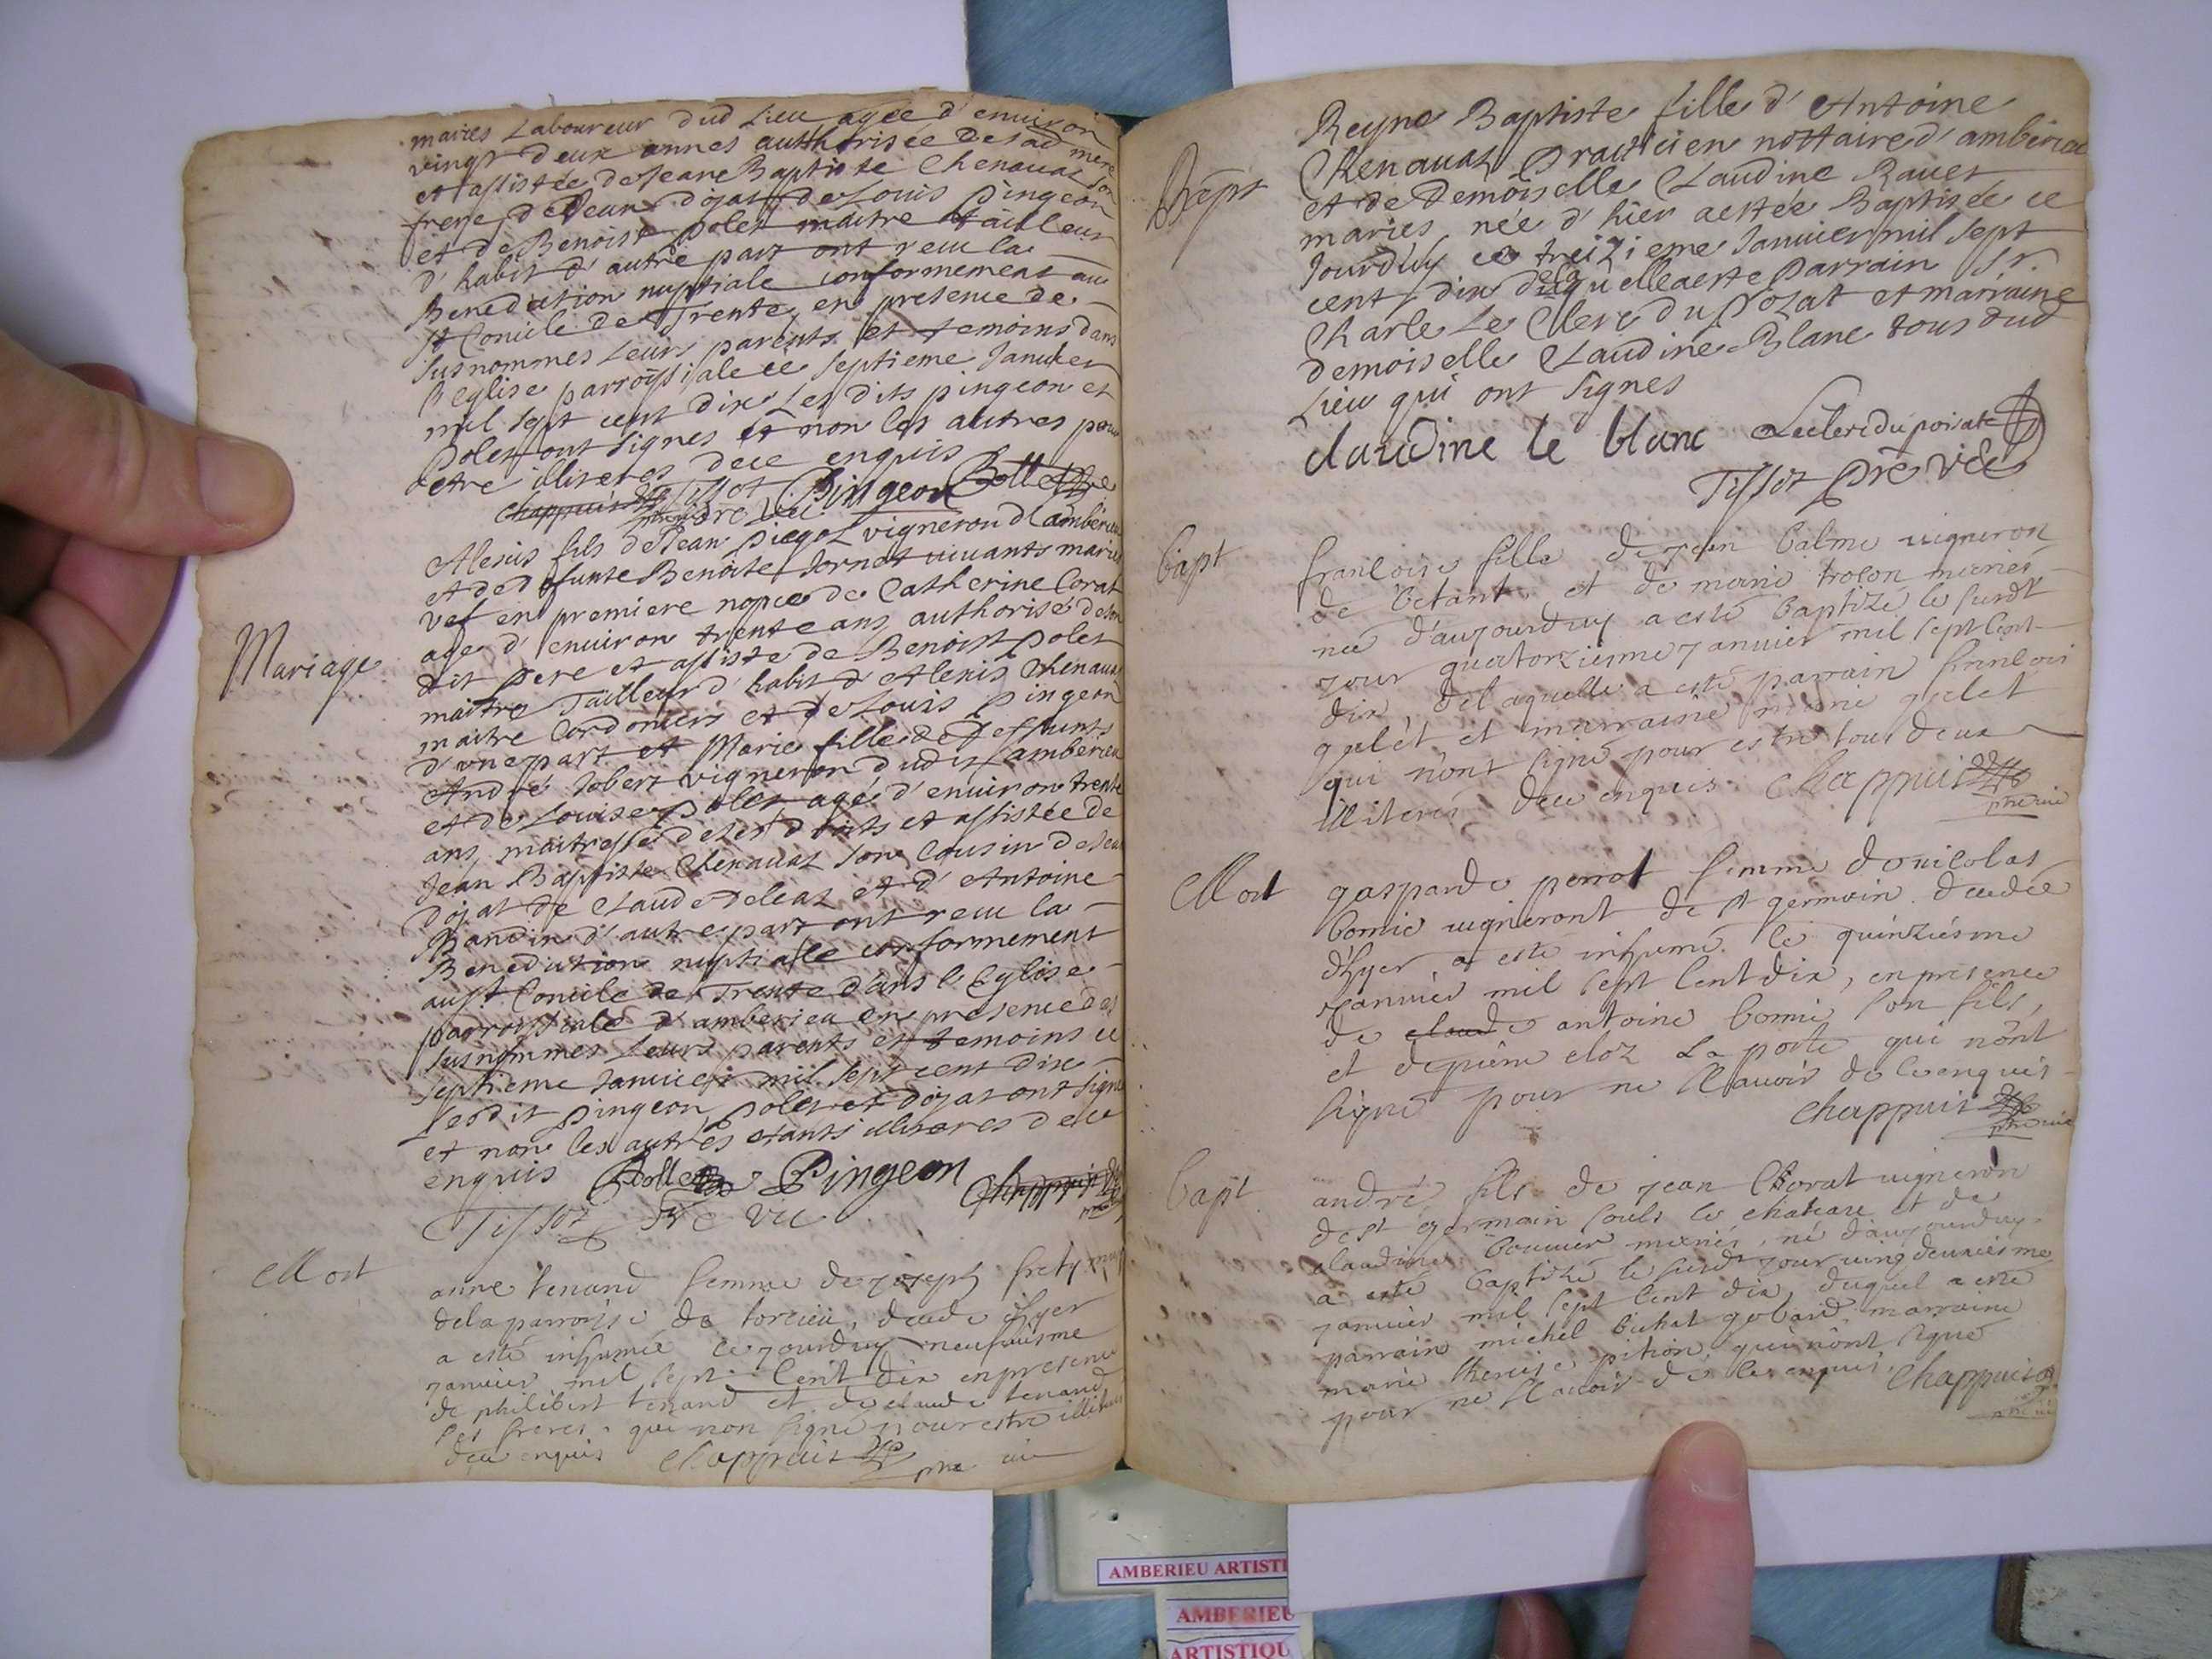 maries Laboureur dud Lieu agée d'environ
vingt deux annes authorisée de sad mere
et assistée de Jean Baptiste Chenauaz son
frere de Jean dojat de Louis Pingeon
et de Benoist polet maitre tailleur
d'habit d'autre part ont receu la
Benediction nuptiale conformement au
St Concile de Trente, en presence de
susnommes Leurs parents et temoins dans
l'Eglise parroissiale ce septieme Januier
mil sept cent dix Les dits pingeon et
polet ont signes et non les autres pour
être illiteres dece enquis
chappuis Tissot Pingeon
pre vic
Mariage
Alexis fils de Jean vigneron d'amberieu
et de defunte Benoite Jornet viuants maries
vef en premiere nopce de Catherine Corat
age d'enuiron trente ans, authorisé de son
dit pere et assiste de Benoist polet
maitre Tailleur d'habit d'Alexis Chenauaz
maitre Cordoniers et de Louis pingeon
d'une part et Marie fille de deffunts
André Jobert vigneron dudit amberieu
et de Louise polet agée d'enuiron trente
ans, maitresse de ses droits et assistée de
Jean Baptiste Chenauaz son Cousin de Jean
Dojat de Claude deleaz et d'Antoine
Bandin d'autre part ont receu la
Benediction nuptialle conformement
au St Concile de Trente dans l'Eglise
parroissiale d'amberieu en presence des
susnommes Leurs parents et temoins ce
septieme Januier mil sept cent dix
Lesdit pingeon, polet et dojat ont signe
et non les autres etants illiteres de ce
enquis Pollet Pingeon Chappuis
Tissot pre vic
Mort
anne tenand femme de joseph frety
de la parroisse de torcieu, decede d'hyer
a esté inhumée ce jourduy neufuiesme
januier mil sept cent dix en presence
de philibert tenand et de claude tenand
ses freres, qui non signé pour estre illiteres
dece enquis Chappuis pre vic
Bapt
Reyne Baptiste fille d'Antoine
Chenauaz Praticien nottaire d'amberieu
et de Demoiselle Claudine Rauet
maries née d'hier aestée Baptisée ce
Jourduy ce treizieme Januier mil sept
cent dix de laquelle aeste Parrain Sr.
Charle Le Clerc du Poizat et marraine
demoiselle Claudine Blanc tous dud
Lieu qui ont signes
claudine le blanc Leclerc du poisat
Tissot pre vic
bapt
francoise fille de jean balme uigneron
de betant et de marie trocon mariés
née d'aujourduy a esté baptizé le susdt
jour quatorziesme januier mil sept cent
dix de laquelle a esté parrain francois
galet et marraine marie galet
qui n'ont signé pour estre tous deux
illiterés dece enquis Chappuis
pre vic
Mort
gasparde perrot femme de nicolas
bomie uigneront de st germain decedée
d'hyer a esté inhumé le quinziesme
januier mil sept cent dix, en presence
de claude antoine bomie son fils,
et de pierre cloz La porte qui nont
signé pour ne scauoir de ce enquis
Chappuis
pre vic
bapt
andré fils de jean Corat uigneron
de st germain soubs le chateau et de
claudine bouuier mariés, né d'aujourduy
a esté baptizé le susdt jour uing deuxiesme
januier mil sept cent dix, duquel a esté
parrain michel buhat gobard marraine
marie therese pition, qui nont signé
pour ne scauoir de ce enquis Chappuis
pre vic
AMBERIEU ARTISTI
AMBERIEU
ARTISTIQU